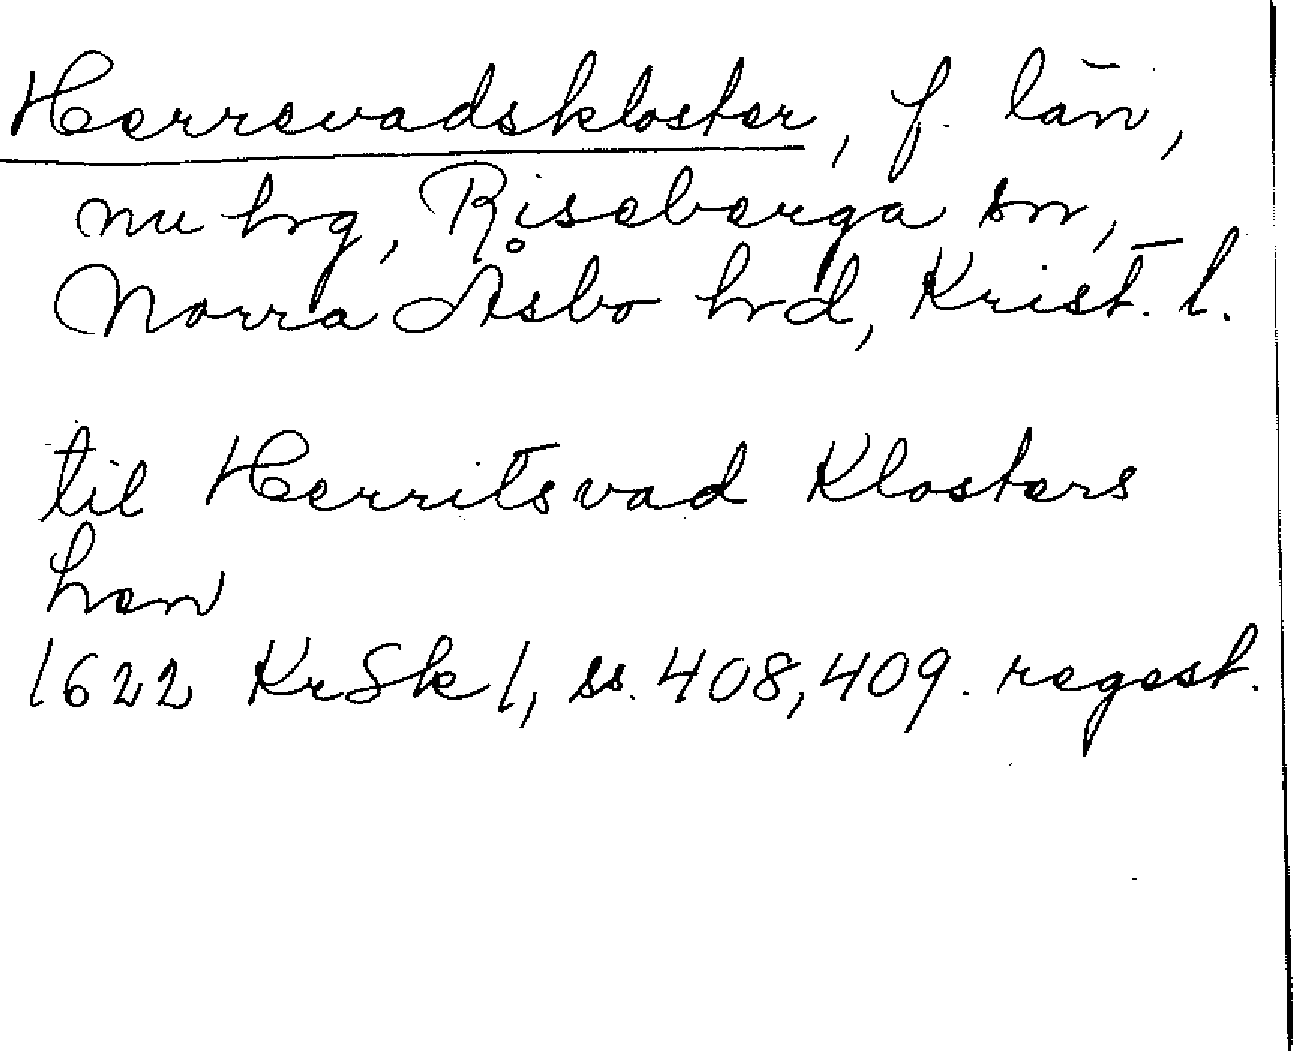 Herrevadskloster, f. län,
nu hrg, Riseberga sn,
Norra Åsbo hrd, Krist. l.
til Herritsvad Klosters
hen
1622 KrSk 1, ss. 408, 409. regest.